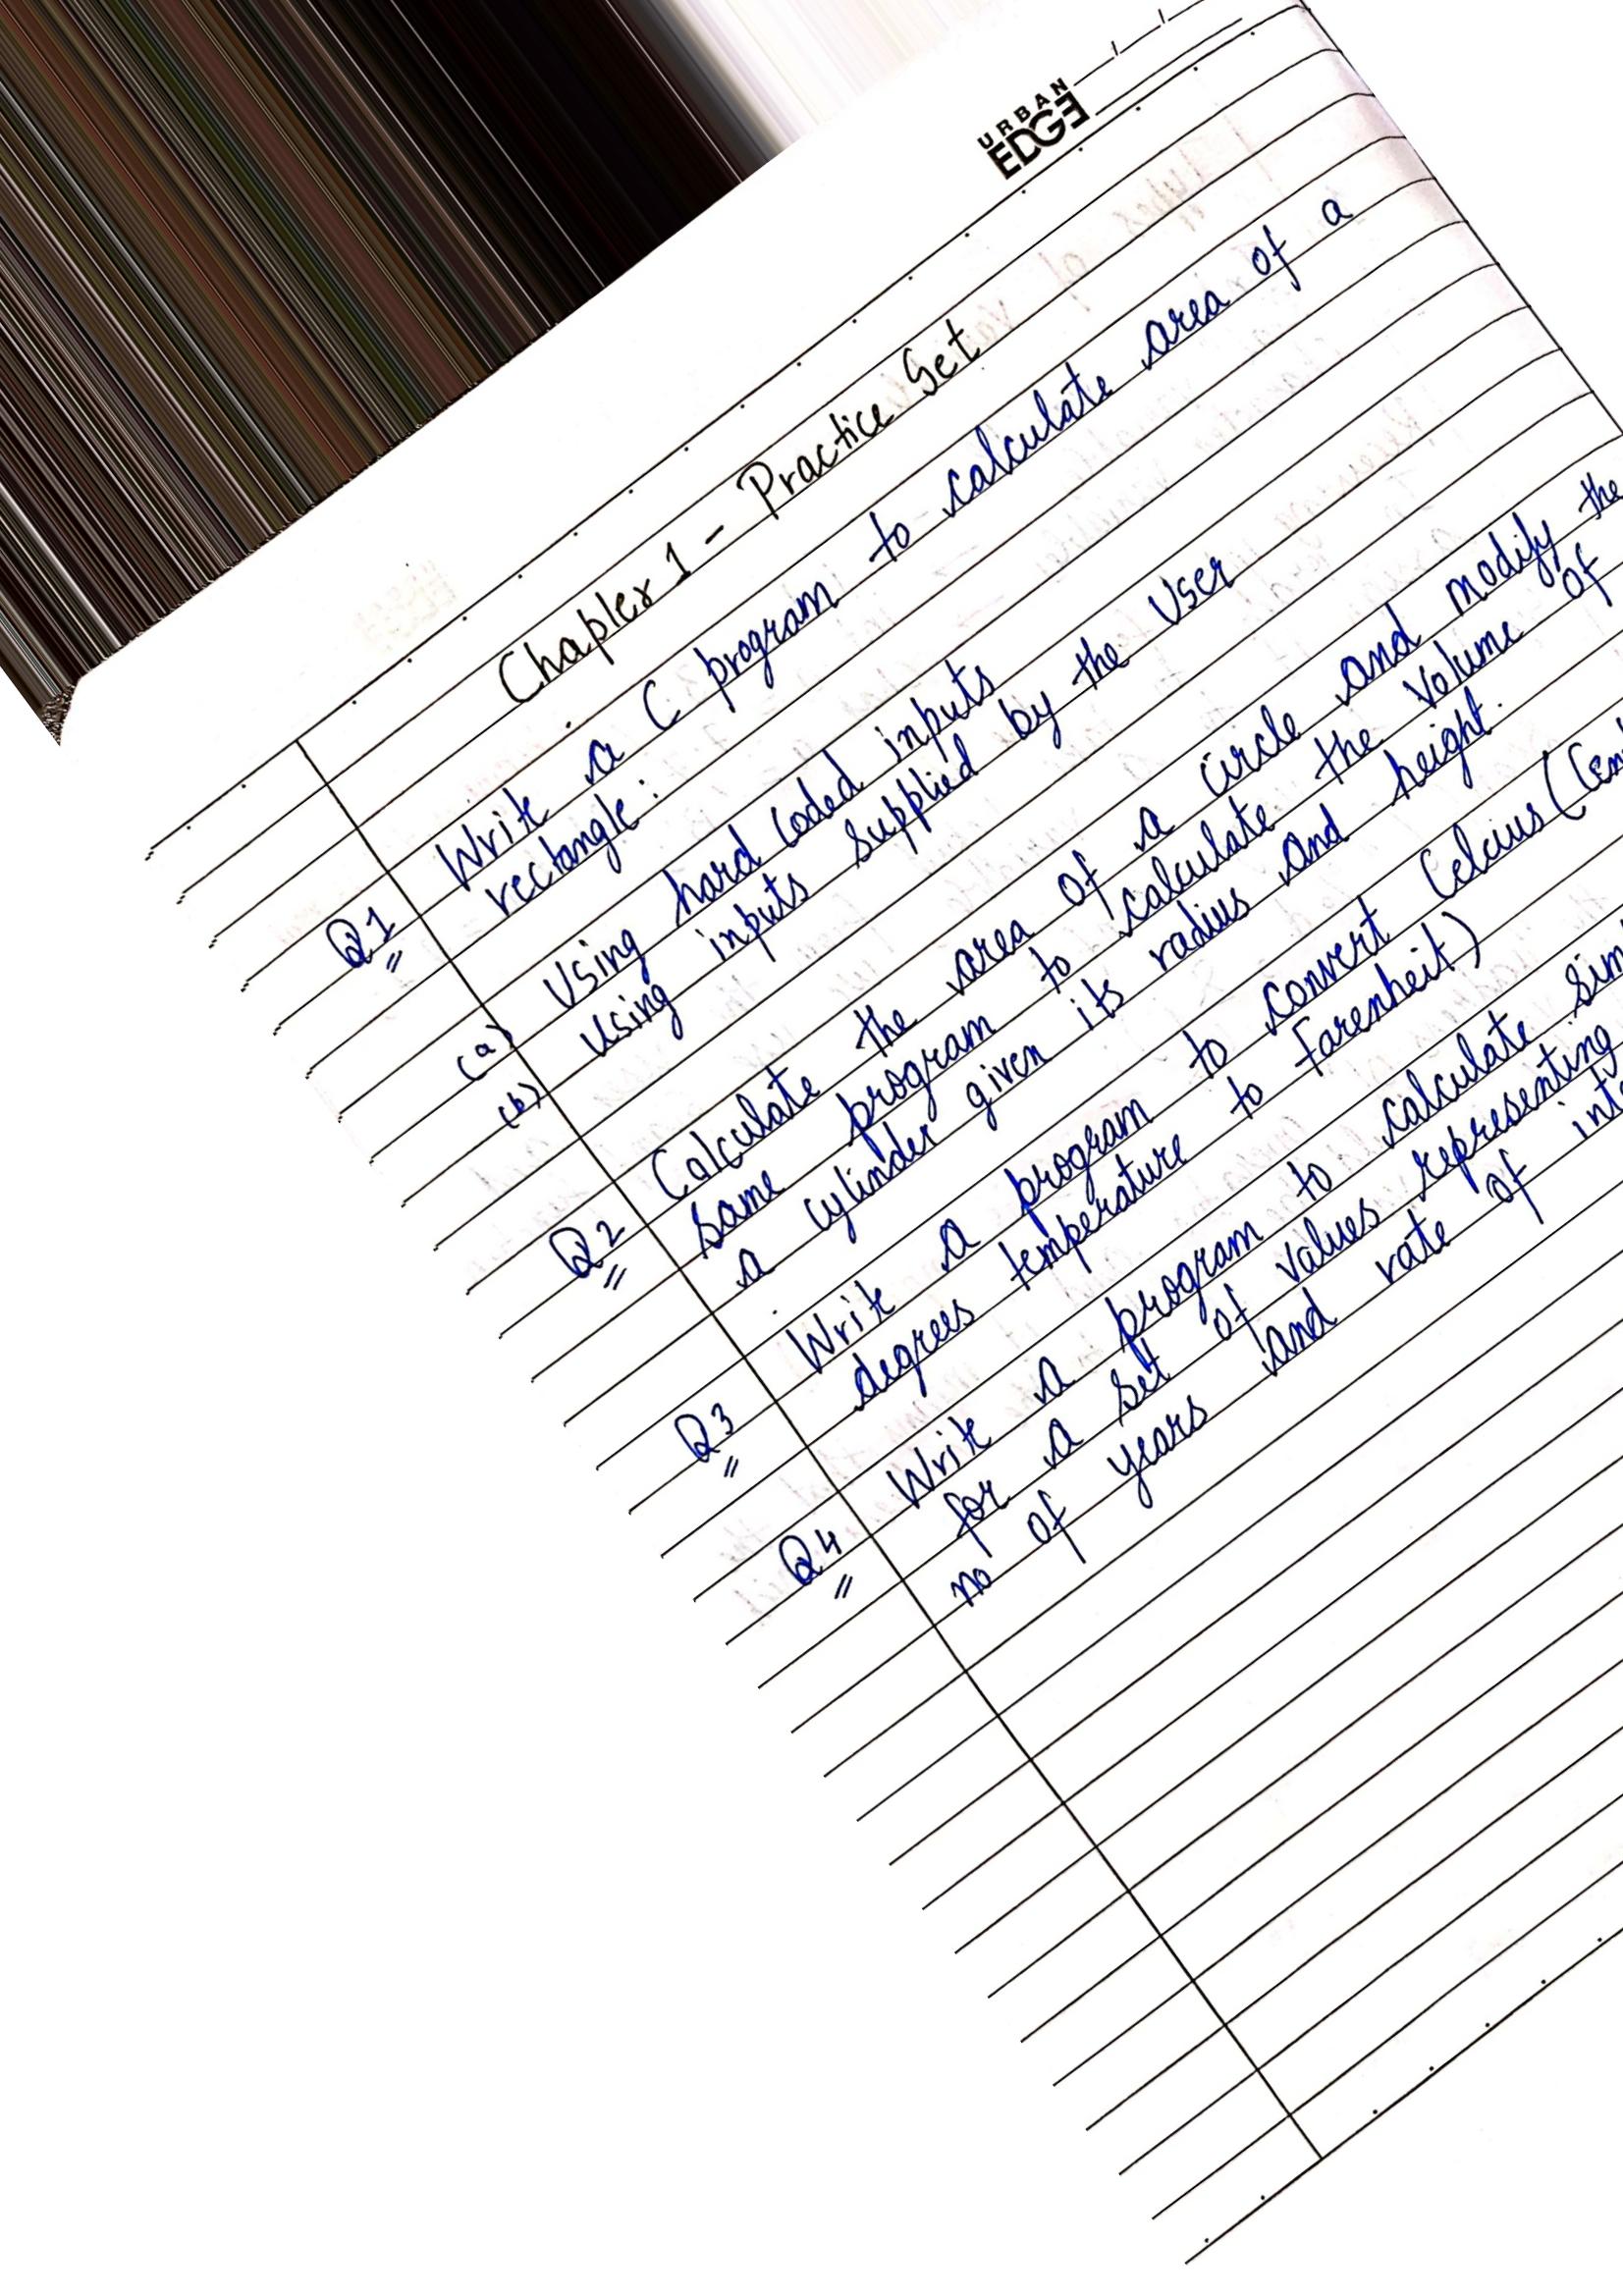 URBAN
EDGE
Chapter 1 - Practice Set
Q1 Write a C program to calculate area of a
rectangle:
(a) Using hard coded inputs
(b) Using inputs supplied by the user
Q2 Calculate the area of a circle and modify the
same program to calculate the volume of
a cylinder given its radius and height.
Q3 Write a program to convert Celcius (Cen
degrees temperature to Farenheit)
Q4 Write a program to calculate sim
for a set of values representing
no of years and rate of int